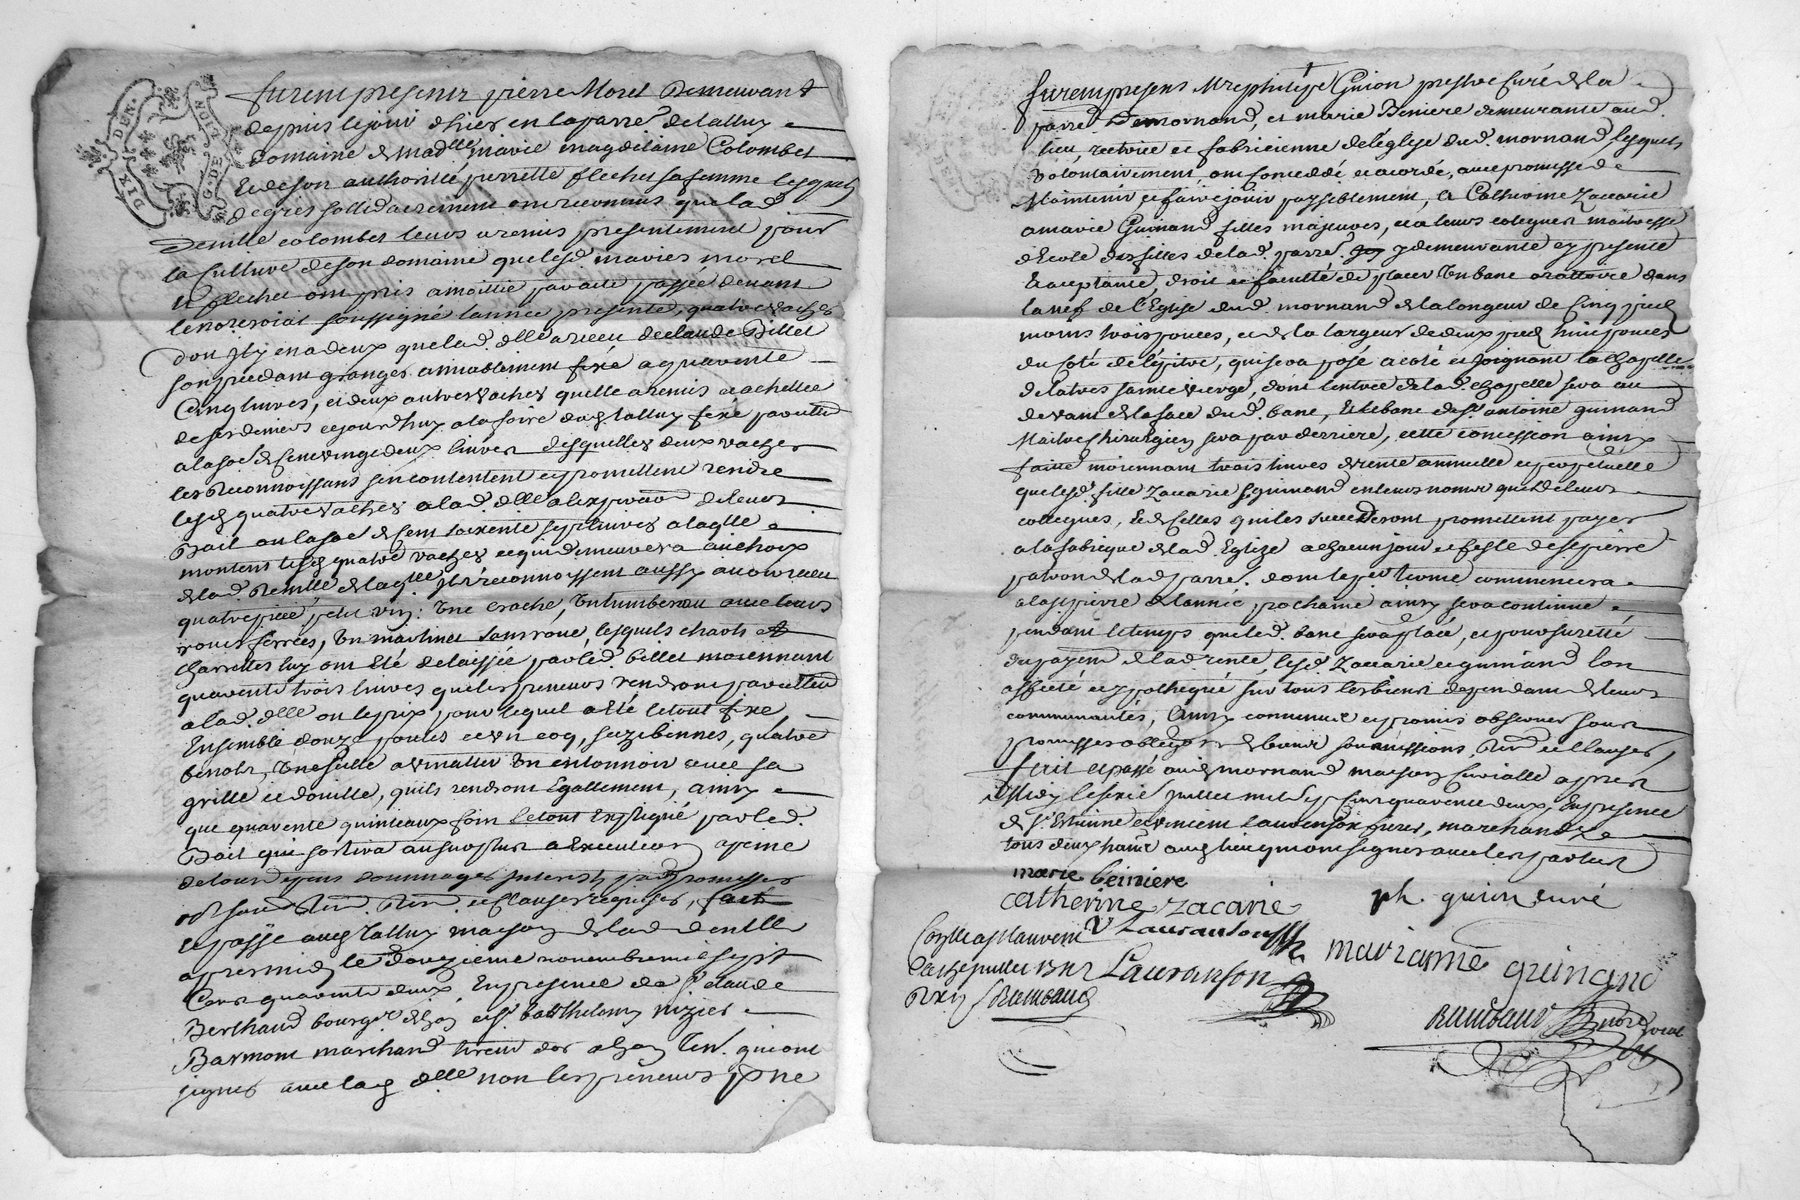 DIX DEN. G. DE LION
furent presents pierre Morel Demeurant
depuis le jour d'hier en la parre. de talluy
domaine de madlle marie magdelaine Colombet
Et de son authorité pierrette flechet sa femme lesquels
de gres sollidairement ont reconnus que lad.
Denille colombet leurs a remis presentement pour
la Culture de son domaine que lesd. maries morel
et flechet ont pris a moittié par acte passée devant
le nore. roial soussigné l'année presente, quatre vaches
dont Il y en a deux que lad. dlle a receu de claude Billet
son precedant granger amiablement fixé a quarente
Cinq livres, et deux autres vaches quelle a remis et achettée
de ses deniers cejourd'huy a la foire dud. talluy fixé par elles
a la so. de Cent vingt deux livres desquelles deux vaches
les Reconnoissans se contentent et promettent rendre
lesd. quatre vaches a lad. dlle a lexpiraon de leur
Bail ou la so. de cent soixente sept livres a laqlle
montent lesd. quatre vaches ce qui demeurera au choix
de lad. Denille de laqlle Ils reconnoissent aussy avoir receu
quatre piece petit vin, Une Crache, Un tumbereau avec leurs
roues ferrées, Un martinet sans roue, lesquels chars et
charrettes luy ont été delaissée par led. billet moiennant
quarente trois livres que les preneurs rendront pareillem.
a lad. dlle ou le prix pour lequel a été le tout fixé
Ensemble douze poules et un coq, seize bennes, quatre
benots, Une seille a Un entonnoir avec sa
grille et douille, quils rendront Egallement, ainsy
que quarente quinteaux foin le tout Expliqué par led.
Bail que sortira au surplus a Execution a peine
de tous depens dommages Interests par promesses
obl. soum. Ren. et clauses requises, fait
et passé aud. talluy maison de lad. denlle
apres midy le douzieme novembre mil sept
Cent quarente deux En presence de sr. claude
Berthaud bourgs. de lyon et sr. barthelemy nizier
Barmont marchand tireur dor a lyon tem. qui ont
signes avec lad. dlle non les preneurs p. ne
furent presens Mre philipe Guion prestre curé de la
parre. De mornand, et marie Beniere demeurante aud.
lieu, rectrice et fabricienne de l'eglise dud. mornand lesquels
volontairement, ont Concedé et acordé, avec promesse de
Maintenir et faire jouir paysiblement, a Catherine Zacarie
a marie Guinand filles majeures, et a leurs collegues maitresse
d'Ecole des filles de lad. parre. y demeurante cy presente
Et aceptante, droit et faculté de placer Un banc oratoire dans
la nef de l'Eglise dud. mornand de la longueur de Cinq pieds
moins trois pouces, et de la largeur de deux pieds huit pouces
du coté de lépitre, qui sera posé a coté et joignant la chapelle
de la tres sainte vierge, dont lentrée de lad. chapelle sera au
devant de la face dud. banc, Et le banc de sr. antoine guinand
Maitre chirurgien sera par derriere, cette concession ainsy
faitte moiennant trois livres de rente annuelle et perpetuelle
que lesd. fille Zacarie et guinand en leurs noms que de leurs
collegues, Et de Celles qui les succederont promettent payer
a la fabrique de lad. Eglize a chacun jour et feste de st. pierre
patron de lad. parre. dont le per. terme commencera
a la st. pierre de l'année prochaine ainsy sera continué
pendant le temps que led. banc sera placé, et pour sureté
du payem. de lad. rente, lesd. Zacarie et guinand l'on
affecté et ypothequé sur tous les biens dependans de leurs
communautés, Ainsy convenu et promis observer sous
promesses obligon. de biens soumissions Ren. et clauses
fait et passé aud. mornand maison curialle apres
Midy le seize juillet mil sept Cent quarente deux, En presence
de sr. Estienne et vincent lauranson freres, marchands
tous deux habit. aud. lieu qui ont signes avec les parties
marie beiniere
catherine zacarie ph. guion curé
V Lauranson
Lauranson
marianne guinand
Raimbaud
Raimbaud Nore roial